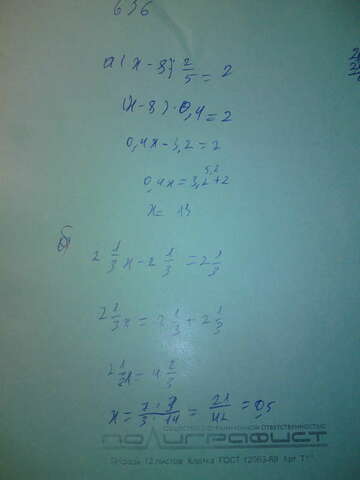 636
а) (x-8) 2/5 = 2
(x-8)·0,4=2
0,4x-3,2=2
5,2
0,4x=3,2+2
x= 13
б)
2 1/3 x-2 1/3 =2 1/3
2 1/3 x = 2 1/3 + 2 1/3
2 1/3 x = 4 2/3
x = 7·3/3·14 = 21/42 = 0,5
ОБЩЕСТВО С ОГРАНИЧЕННОЙ ОТВЕТСТВЕННОСТЬЮ
ПОЛИГРАФИСТ
Тетрадь 12 листов Клетка ГОСТ 12063-89 Арт